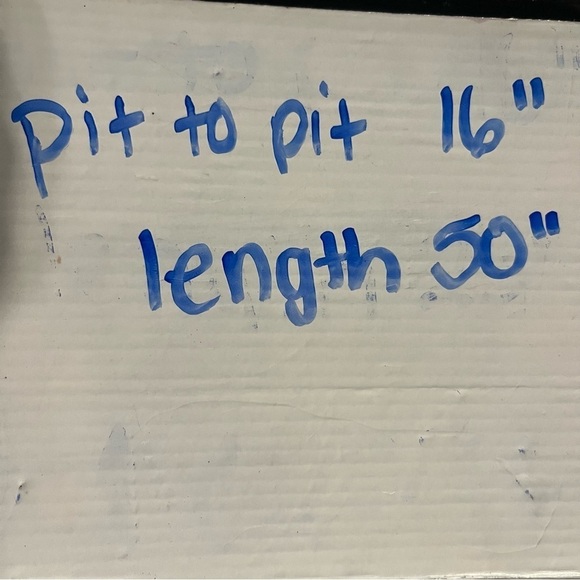 pit to pit 16"
length 50"